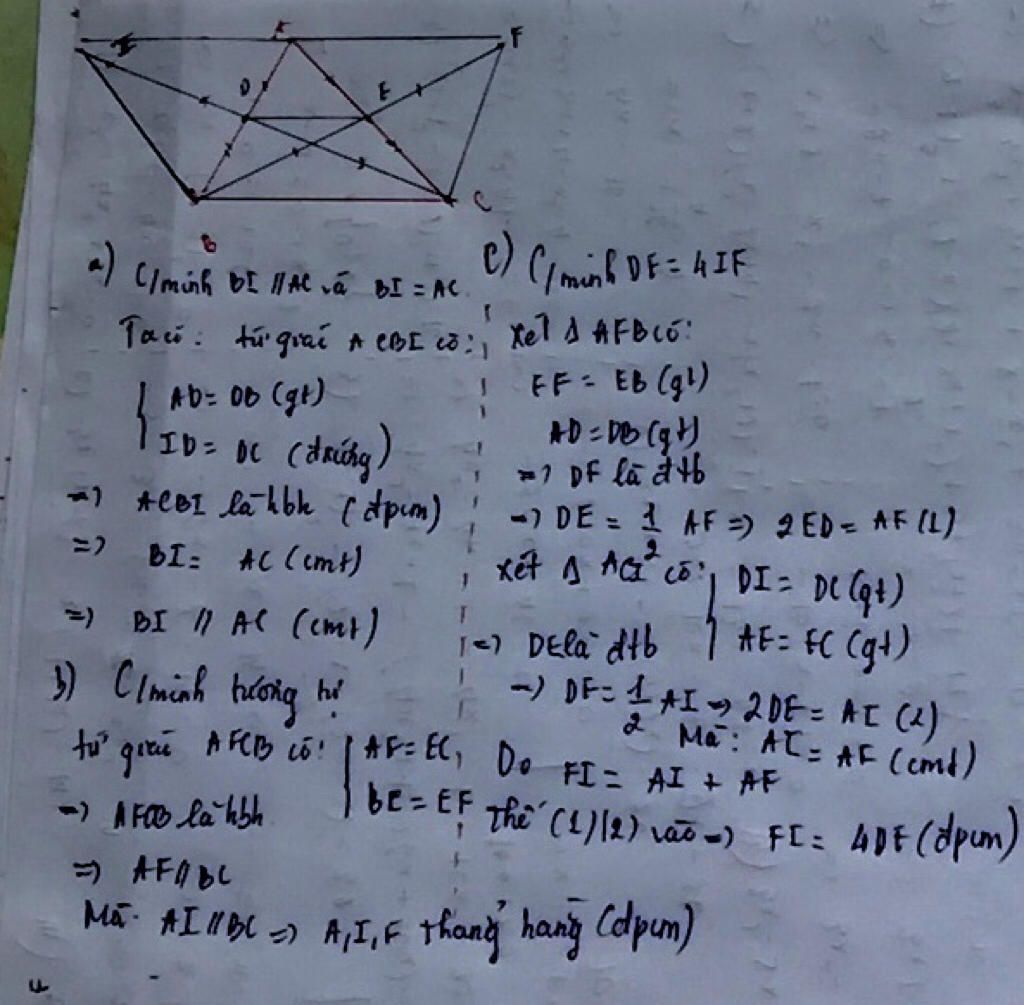 I
F
D
E
B
C
a) C/minh BI // AC và BI = AC
Ta có: tứ giác ACBI có:
AD = DB (gt)
ID = DC (đxứng)
=> ACBI là hbh (đpcm)
=> BI = AC (cmt)
=> BI // AC (cmt)
b) C/minh tương tự
tứ giác AFCB có: AE = EC,
BE = EF
=> AFCB là hbh
=> AF // BC
Mà AI // BC => A, I, F thẳng hàng (đpcm)
c) C/minh DE = 4IF
Xét Δ AFB có:
EF = EB (gt)
AD = DB (gt)
=> DE là đtb
=> DE = 1/2 AF => 2ED = AF (1)
Xét Δ ACI có: DI = DC (gt)
AE = EC (gt)
=> DE là đtb
=> DE = 1/2 AI => 2DE = AI (2)
Mà: AI = AF (cmt)
Do FI = AI + AF
thế (1)(2) vào => FI = 4DE (đpcm)